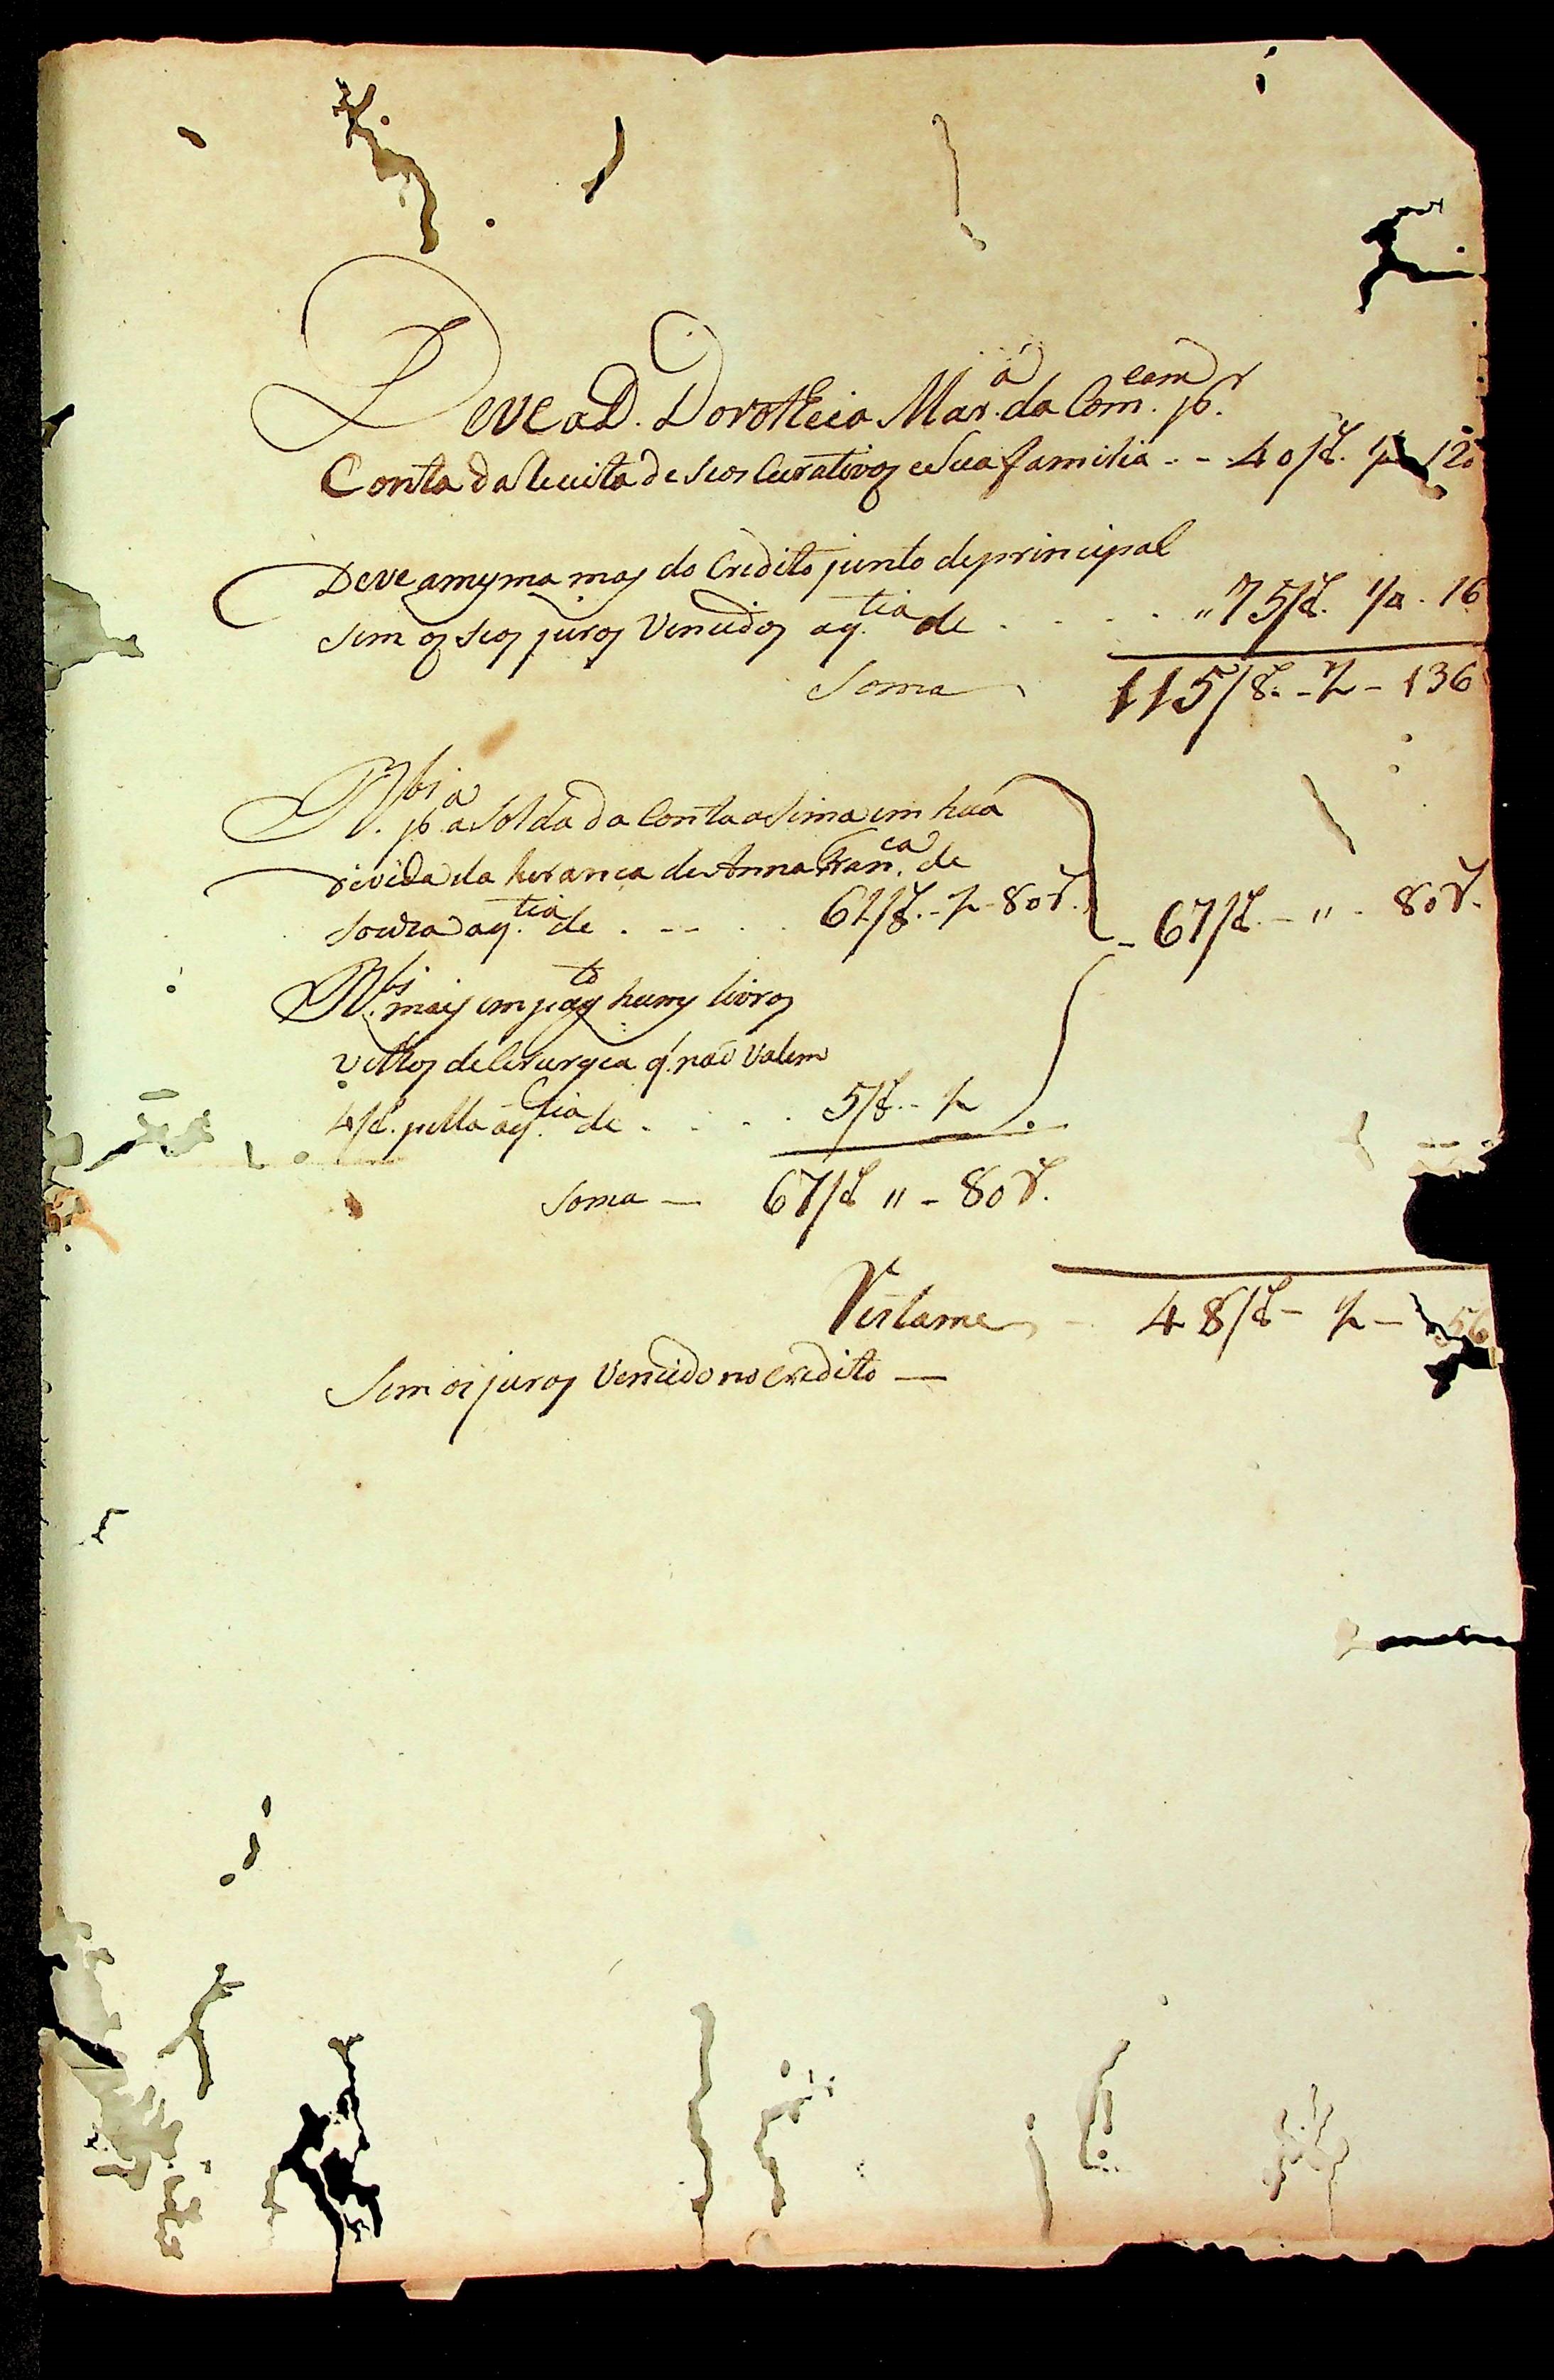 Deve a D. Dorotheia Mar.ᵃ da Com.ᶜᵃᵐ p.ʳ
Conta da Receita de seos Curativos e Sua familia - - 40/8.ᵃ ½ 120
Deve a mesma mais do Credito junto de principal
sem os seos juros Vencidos a q.ᵗⁱᵃ de . . . . " 75/8.ᵃ ¼ . 16
Soma 115/8.ᵃ - ½ - 136
R.ᵇⁱ p.ᵃ a Solda da Conta asima em huã
divida da heranca de Anna Fran.ᶜᵃ de
Souza a q.ᵗⁱᵃ de . - - . . 61/8.ᵃ - ½ - 80 r.ˢ - 67/8.ᵃ - " - 80 r.ˢ
R.ᵇⁱ mais em pag.ᵗᵒ huns livros
velhos de Cirurgia q. não Valem
4/8.ᵃ pella q.ᵗⁱᵃ de . . . . 5/8.ᵃ - ½
Soma — 67/8.ᵃ " - 80 r.ˢ
Restame - 48/8.ᵃ - ½ - 56
Sem os juros Vencido no Credito —